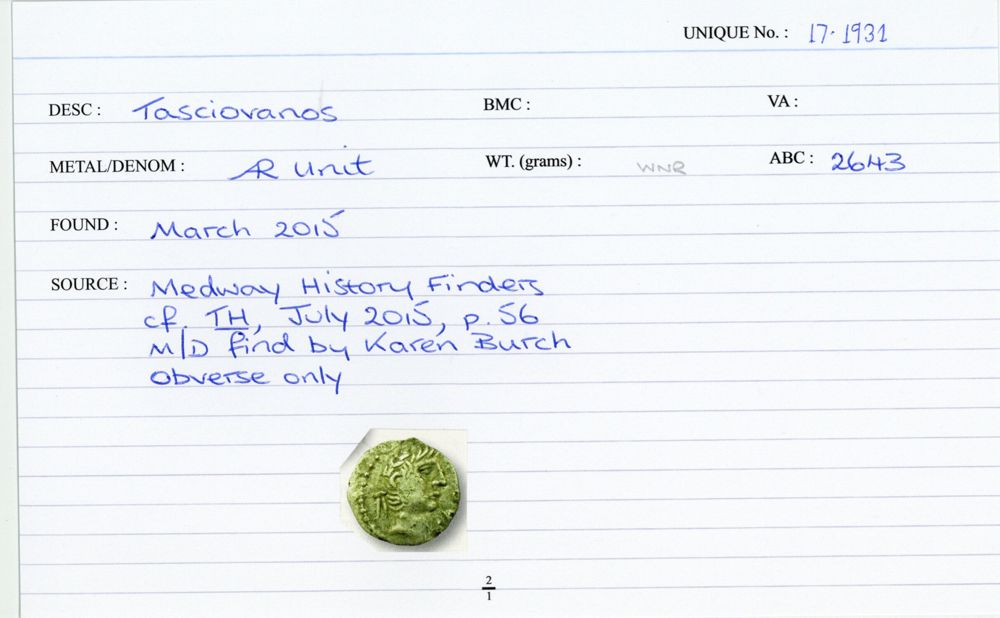 UNIQUE No. : 17·1931
DESC : Tasciovanos BMC : VA :
METAL/DENOM : AR Unit WT. (grams) : WNR ABC : 2643
FOUND : March 2015
SOURCE : Medway History Finders
cf. TH, July 2015, p. 56
M/D find by Karen Burch
Obverse only
2
1